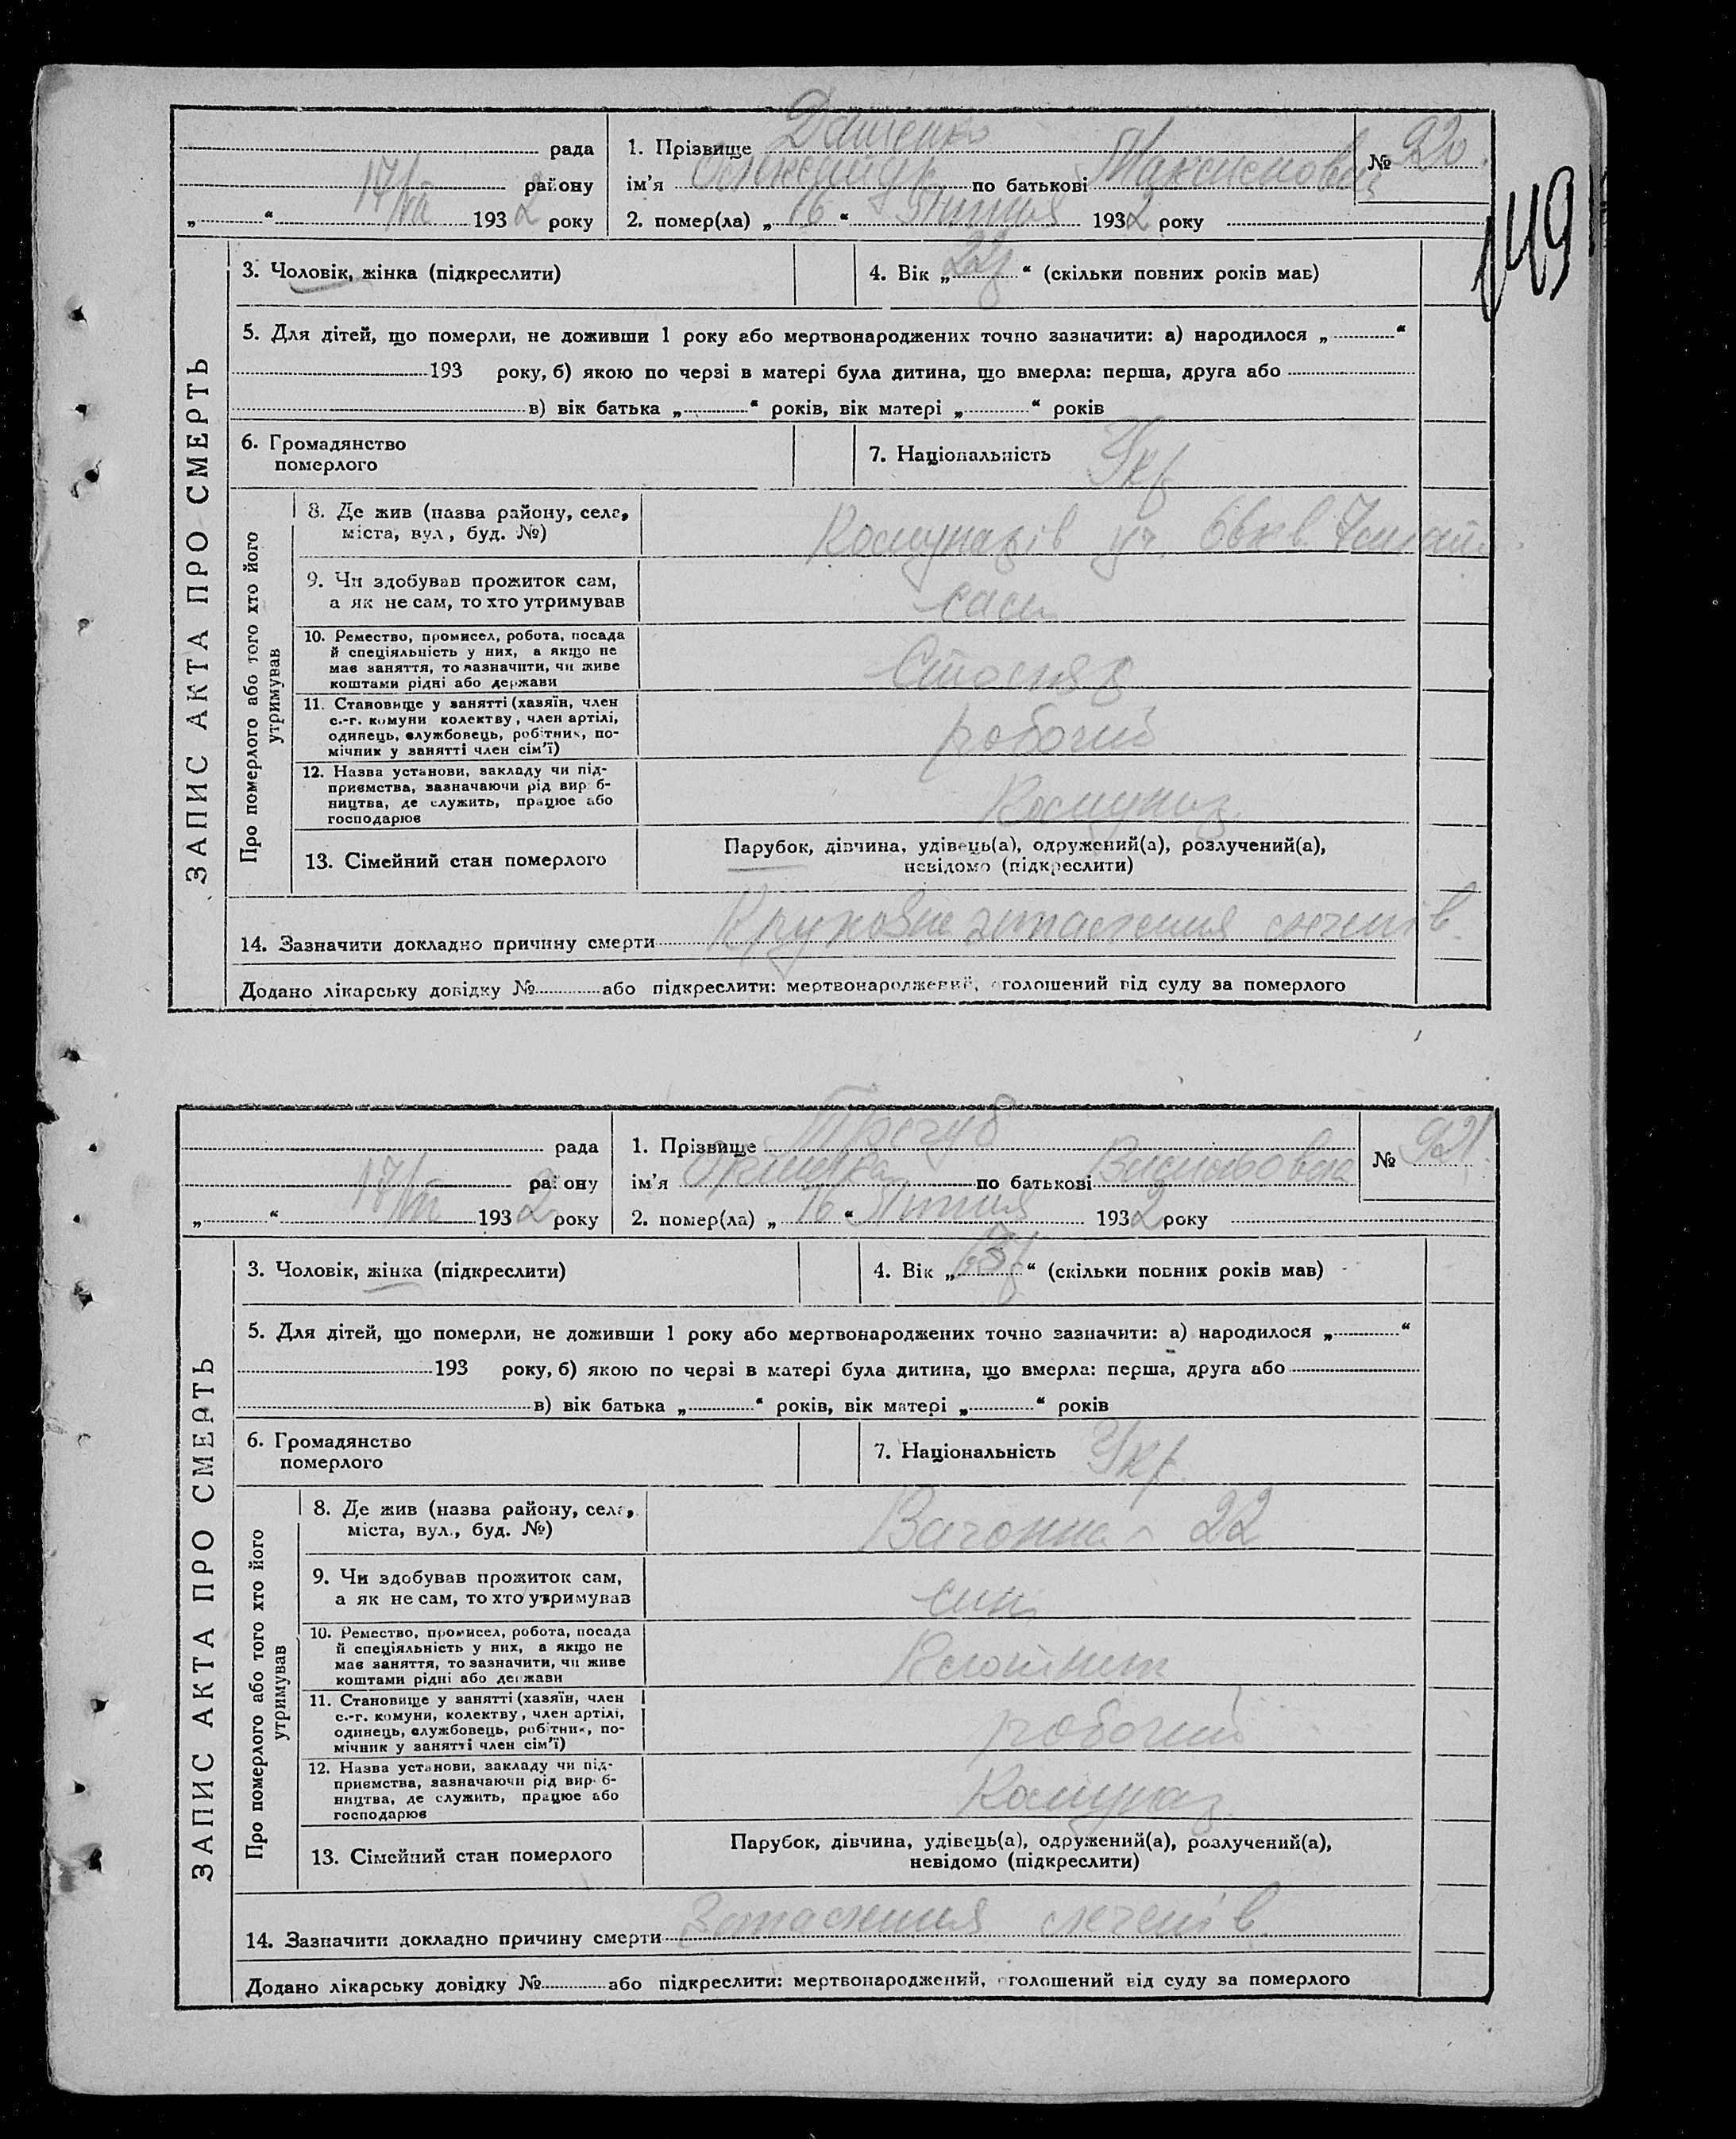 Даценко
рада 1. Прізвище № 920.
району ім'я Олександр по батькові Максимович
„ “ 17/VII 1932 року 2. помер(ла) „ 16 “ Липня 1932 року
149
ЗАПИС АКТА ПРО СМЕРТЬ
3. Чоловік, жінка (підкреслити) 4. Вік „ 22 р “ (скільки повних років мав)
5. Для дітей, що померли, не доживши 1 року або мертвонароджених точно зазначити: а) народилося „ “
193 року, б) якою по черзі в матері була дитина, що вмерла: перша, друга або
в) вік батька „ “ років, вік матері „ “ років
6. Громадянство
померлого
7. Національність Укр
Про померлого або того хто його
утримував
8. Де жив (назва району, села,
міста, вул., буд. №)
Комунарів
9. Чи здобував прожиток сам,
а як не сам, то хто утримував
сам
10. Ремество, промисел, робота, посада
й спеціяльність у них, а якщо не
має заняття, то зазначити, чи живе
коштами рідні або держави
Столяр
11. Становище у занятті (хазяїн, член
с.-г. комуни колектву, член артілі,
одинець, службовець, робітник, по-
мічник у занятті член сім'ї)
робочий
12. Назва установи, закладу чи під-
приємства, зазначаючи рід вироб-
ництва, де служить, працює або
господарює
Комунар
13. Сімейний стан померлого
Парубок, дівчина, удівець(а), одружений(а), розлучений(а),
невідомо (підкреслити)
14. Зазначити докладно причину смерти Крупозне запалення легенів.
Додано лікарську довідку № або підкреслити: мертвонароджений, оголошений від суду за померлого
Трегуб
рада 1. Прізвище № 921.
району ім'я по батькові
„ “ 17/VII 1932 року 2. помер(ла) „ 16 “ Липня 1932 року
ЗАПИС АКТА ПРО СМЕРТЬ
3. Чоловік, жінка (підкреслити) 4. Вік „ “ (скільки повних років мав)
5. Для дітей, що померли, не доживши 1 року або мертвонароджених точно зазначити: а) народилося „ “
193 року, б) якою по черзі в матері була дитина, що вмерла: перша, друга або
в) вік батька „ “ років, вік матері „ “ років
6. Громадянство
померлого
7. Національність Укр.
Про померлого або того хто його
утримував
8. Де жив (назва району, села,
міста, вул., буд. №)
Вагонна 22
9. Чи здобував прожиток сам,
а як не сам, то хто утримував
син
10. Ремество, промисел, робота, посада
й спеціяльність у них, а якщо не
має заняття, то зазначити, чи живе
коштами рідні або держави
11. Становище у занятті (хазяїн, член
с.-г. комуни, колектву, член артілі,
одинець, службовець, робітник, по-
мічник у занятті член сім'ї)
робочий
12. Назва установи, закладу чи під-
приємства, зазначаючи рід вироб-
ництва, де служить, працює або
господарює
Комунар
13. Сімейний стан померлого
Парубок, дівчина, удівець(а), одружений(а), розлучений(а),
невідомо (підкреслити)
14. Зазначити докладно причину смерти Запалення легенів.
Додано лікарську довідку № або підкреслити: мертвонароджений, оголошений від суду за померлого